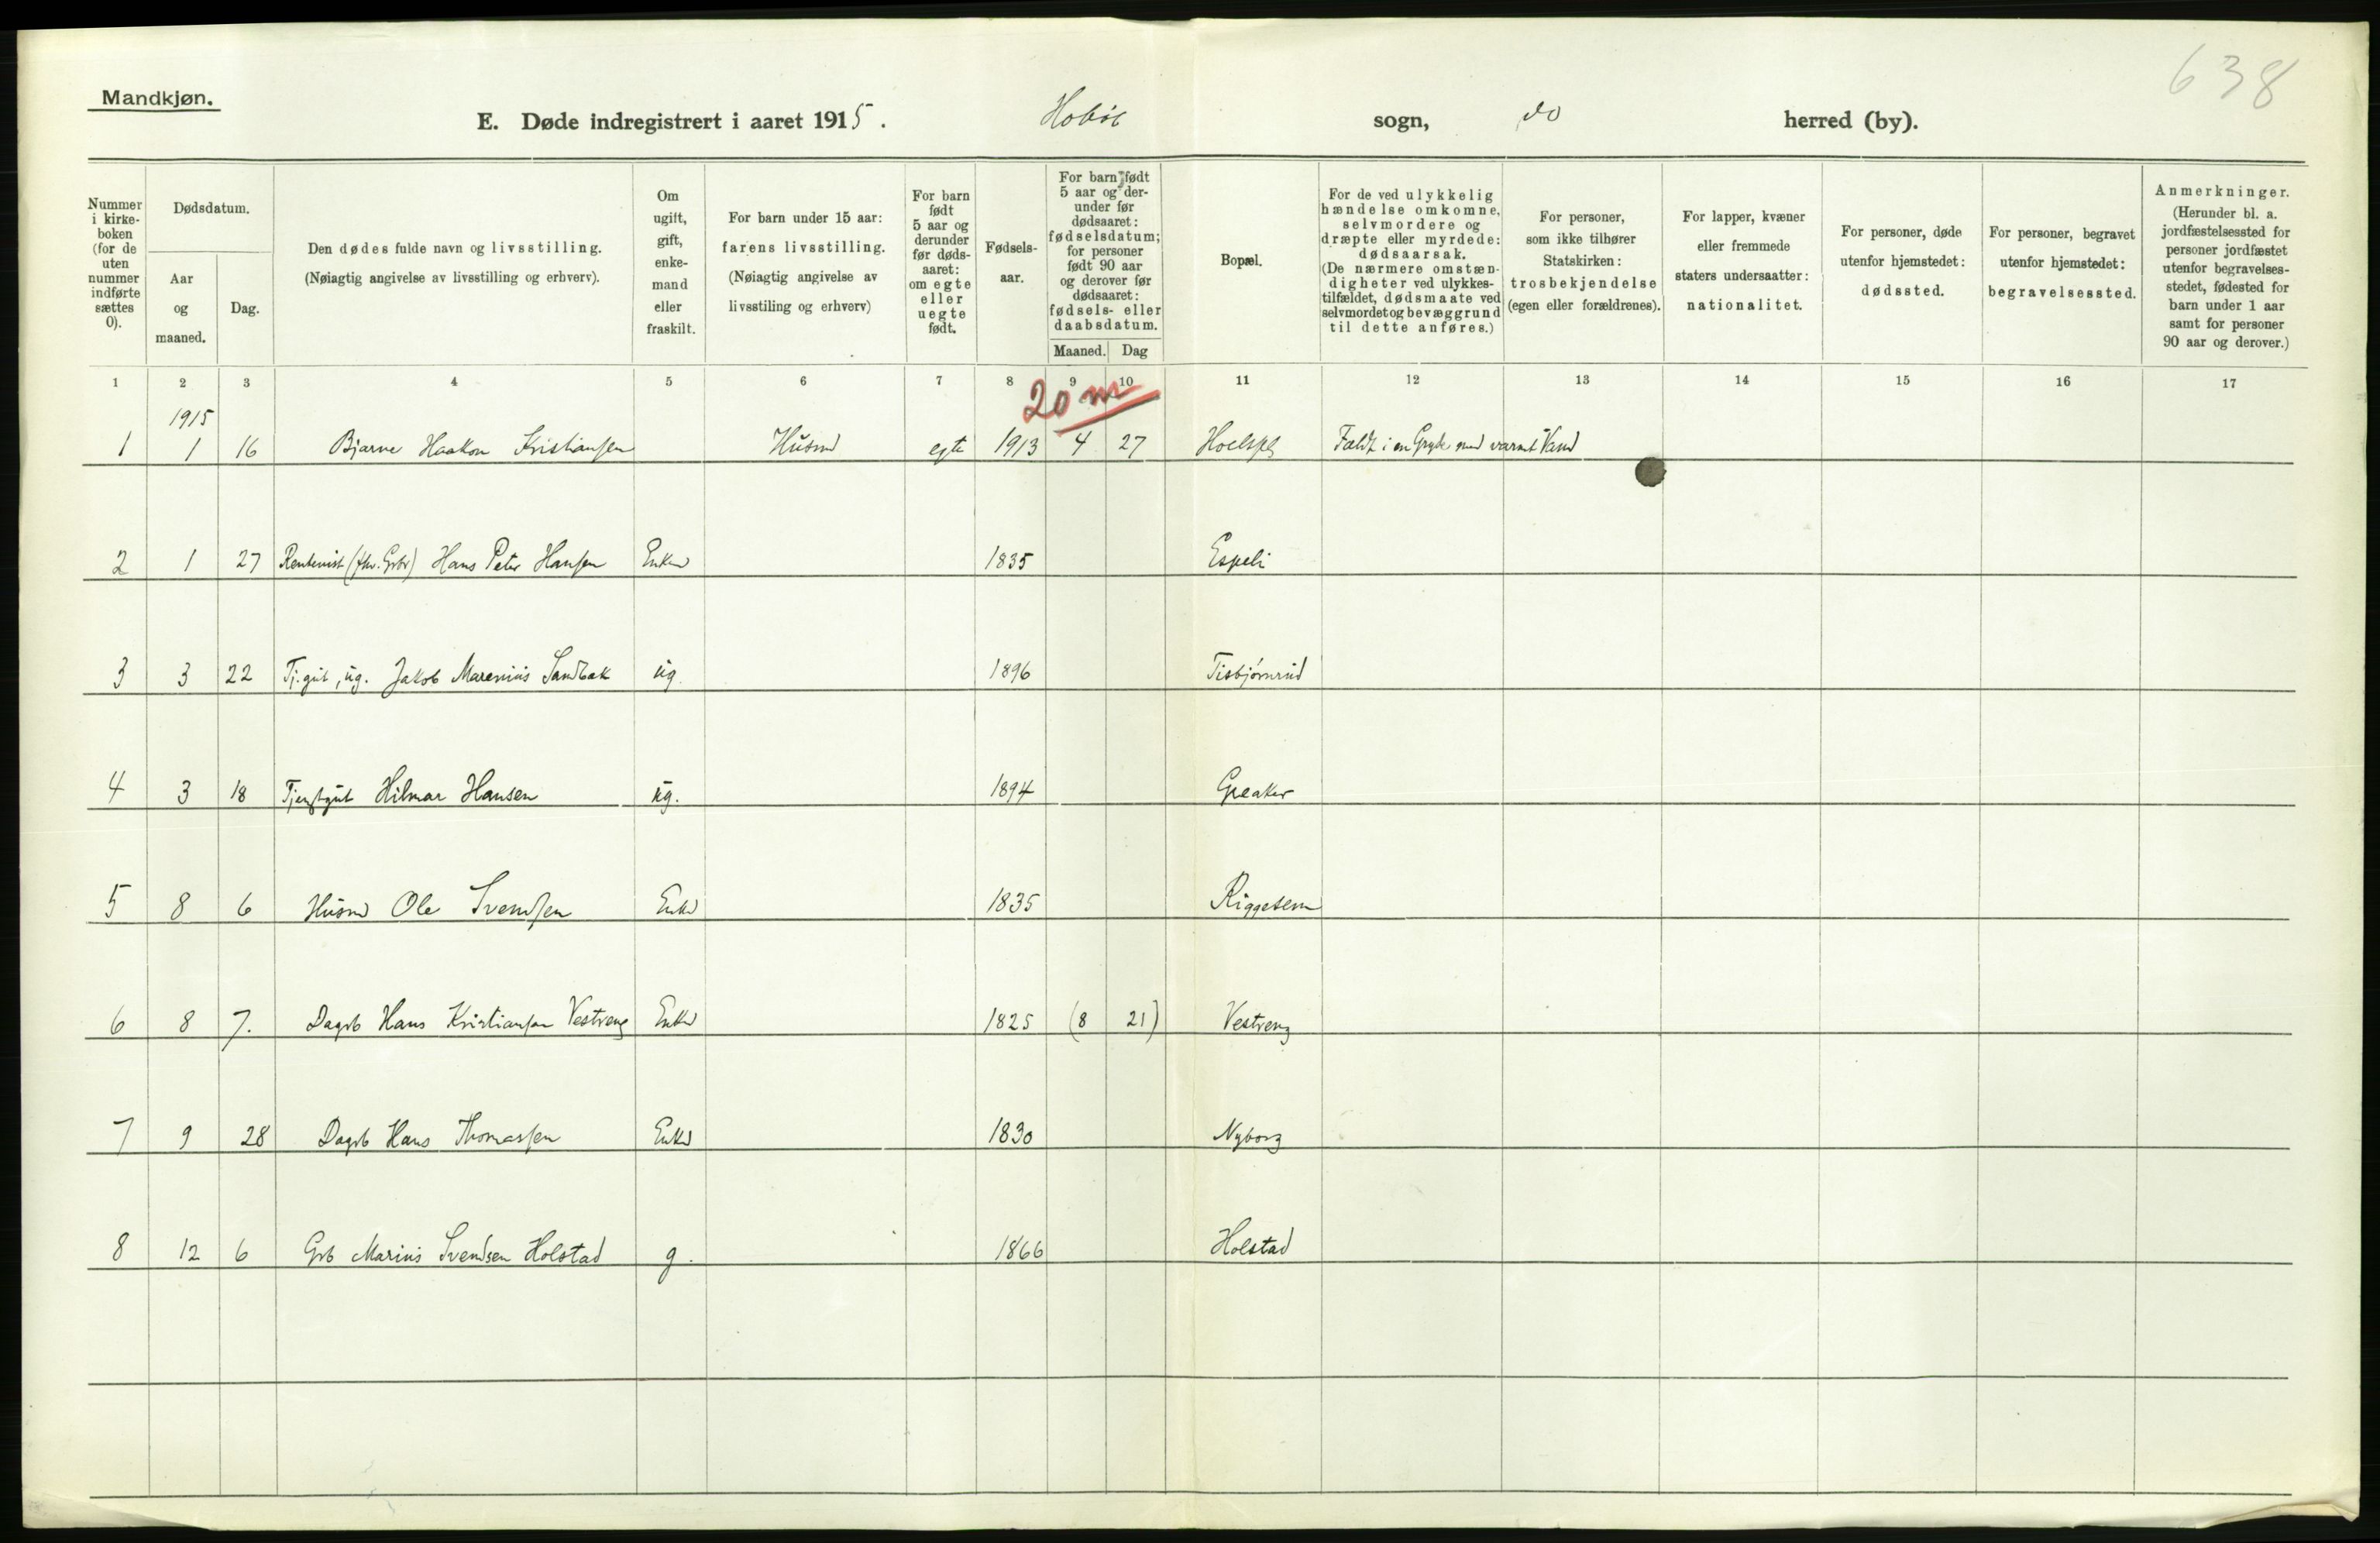 638
Mandkjøn.
E. Døde indregistrert i aaret 1915. Hobøl sogn, do herred (by).
Nummer i kirkeboken (for de uten nummer indførte sættes 0).
Dødsdatum.
Aar og maaned.
Dag.
Den dødes fulde navn og livsstilling.
(Nøiagtig angivelse av livsstilling og erhverv).
Om ugift, gift, enkemand eller fraskilt.
For barn under 15 aar:
farens livsstilling.
(Nøiagtig angivelse av livsstiling og erhverv)
For barn født 5 aar og derunder før dødsaaret: om egte eller uegte født.
Fødselsaar.
For barn født 5 aar og derunder før dødsaaret: fødselsdatum; for personer født 90 aar og derover før dødsaaret: fødsels- eller daabsdatum.
Maaned. Dag
Bopæl.
For de ved ulykkelig hændelse omkomne, selvmordere og dræpte eller myrdede: dødsaarsak. (De nærmere omstændigheter ved ulykkestilfældet, dødsmaate ved selvmordet og bevæggrund til dette anføres.)
For personer, som ikke tilhører Statskirken: trosbekjendelse (egen eller forældrenes).
For lapper, kvæner eller fremmede staters undersaatter: nationalitet.
For personer, døde utenfor hjemstedet: dødssted.
For personer, begravet utenfor hjemstedet: begravelsessted.
Anmerkninger.
(Herunder bl. a. jordfæstelsessted for personer jordfæstet utenfor begravelsesstedet, fødested for barn under 1 aar samt for personer 90 aar og derover.)
1 2 3 4 5 6 7 8 9 10 11 12 13 14 15 16 17
20 m
1915
1 1 16 Bjarne Haakon Kristiansen Husmd egte 1913 4 27 Hoelspl Faldt i en Gryde med varmt Vand
2 1 27 Rentenist (fhv. Grbr) Hans Peter Hansen Enkm 1835 Espeli
3 3 22 Tj.gut, ug. Jakob Marenius Sandbak ug. 1896 Tisbjørnrud
4 3 18 Tjenstgut Hilmar Hansen ug. 1894 Greaker
5 8 6 Husmd Ole Svendsen Enkd 1835 Riggesem
6 8 7. Dagsb Hans Kristiansen Vestreng Enkd 1825 (8 21) Vestreng
7 9 28 Dagsb Hans Thomassen Enkd 1830 Nyborg
8 12 6 Grb Marius Svendsen Holstad g. 1866 Holstad